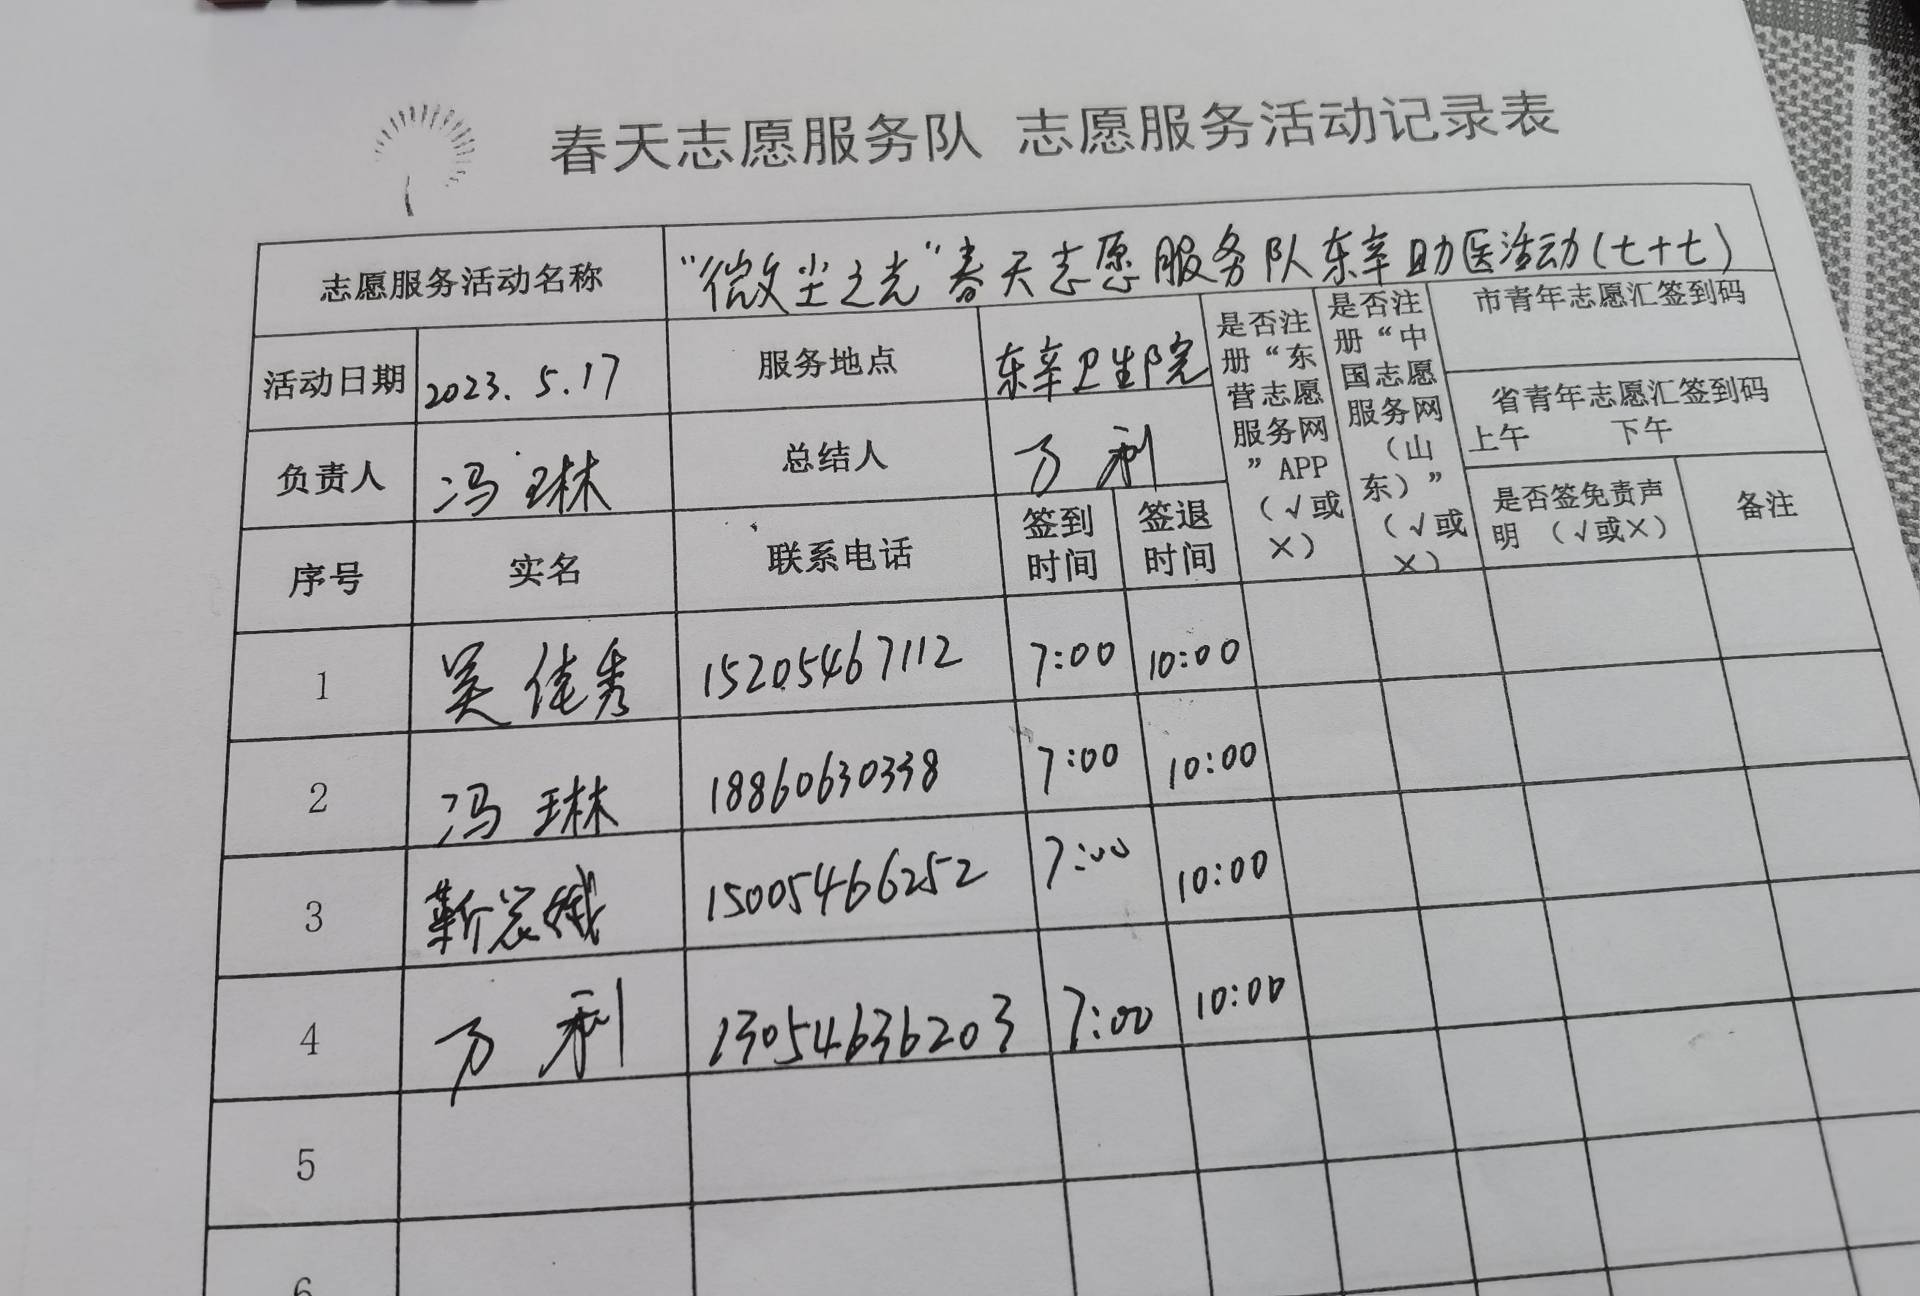 春天志愿服务队 志愿服务活动记录表
志愿服务活动名称 “微尘之光”春天志愿服务队东辛助医活动(七十七)
活动日期 2023.5.17 服务地点 东辛卫生院
负责人 冯琳 总结人 万利
是否注
册“东
营志愿
服务网
”APP
(√或
×)
是否注
册“中
国志愿
服务网
(山
东)”
(√或
×)
市青年志愿汇签到码
省青年志愿汇签到码
上午 下午
是否签免责声
明 (√或×)
备注
序号 实名 联系电话
签到
时间
签退
时间
1 吴佳秀 15205467112 7:00 10:00
2 冯琳 18860630338 7:00 10:00
3 靳 15005466252 7:00 10:00
4 万利 13054636203 7:00 10:00
5
6